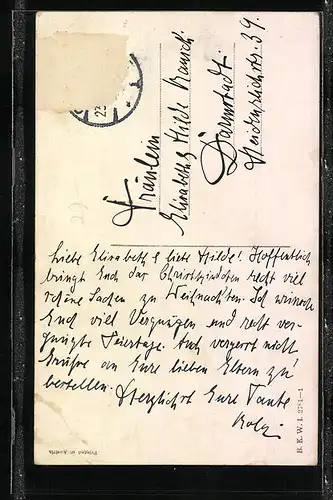 Fräulein
Elisabeth & Hilde Rausch
Darmstadt.
Heidenreichstr. 39.
Liebe Elisabeth & liebe Hilde! Hoffentlich
bringt Euch das Christkindchen recht viel
schöne Sachen zu Weihnachten. Ich wünsche
Euch viel Vergnügen und recht ver-
gnügte Feiertage. Auch vergesst nicht
Grüsse an Eure lieben Eltern zu
bestellen. Herzlichst Eure Tante
Printed in Austria
B.K.W.I. 2781-1
23